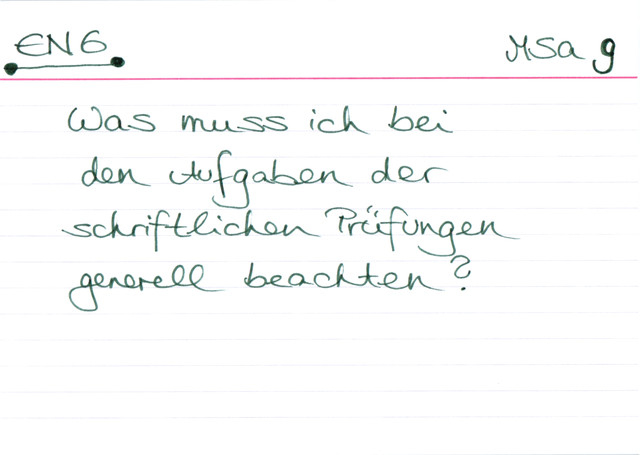 EN6 MSa 9
Was muss ich bei
den Aufgaben der
schriftlichen Prüfungen
generell beachten?